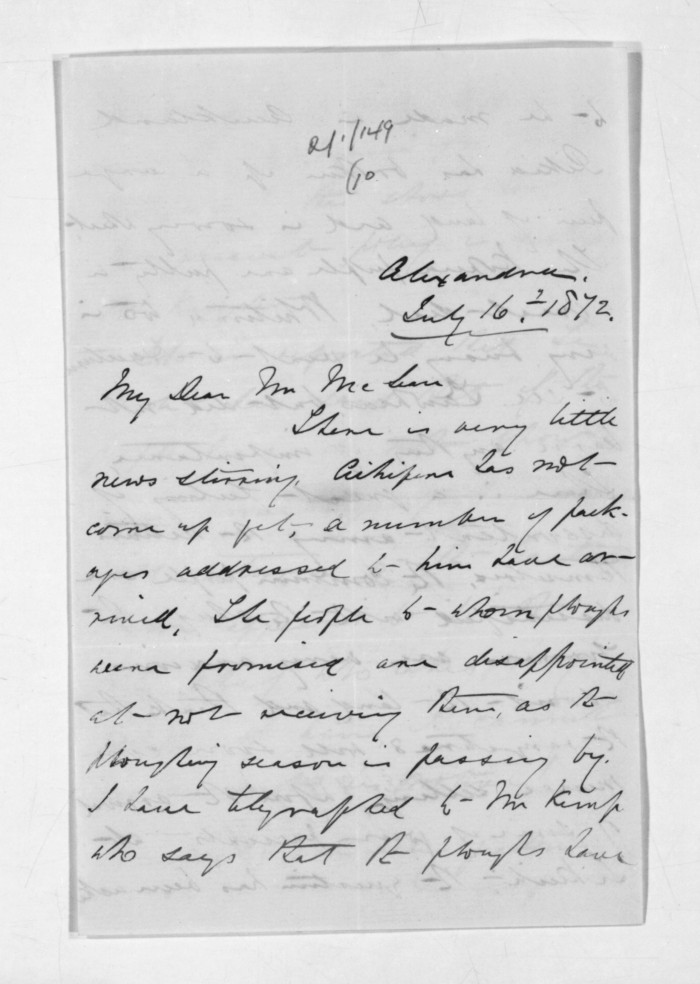 2/1/149
(10
Alexandra.
July 16. 1872.
My Dear Mr McLean
There is very little
news stirring, has not
come up yet, a number of pack-
ages addressed to him have ar-
rived, The people to whom ploughs
were promised are disappointed
at not receiving them, as the
ploughing season is passing by.
I have telegraphed to Mr Kemp
who says that the ploughs have